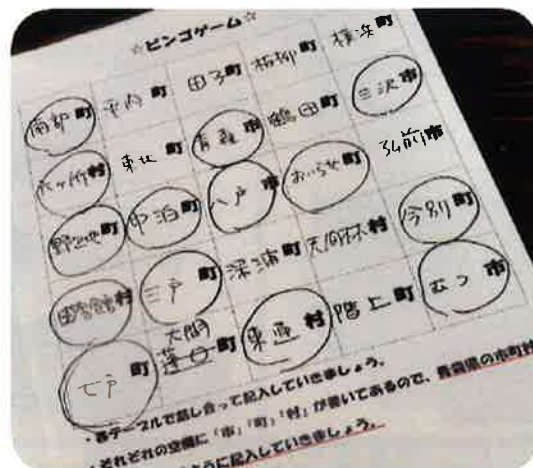 ☆ビンゴゲーム☆
南部町 平内町 田子町 板柳町 横浜町
六ヶ所村 東北町 青森市 鶴田町 三沢市
野辺地町 中泊町 八戸市 おいらせ町 弘前市
田舎館村 三戸町 深浦町 天間林村 今別町
七戸町 大間町 東通村 階上町 むつ市
・各テーブルで話し合って記入していきましょう。
・それぞれの空欄に「市」「町」「村」が書いてあるので、青森県の市町村
ように記入していきましょう。